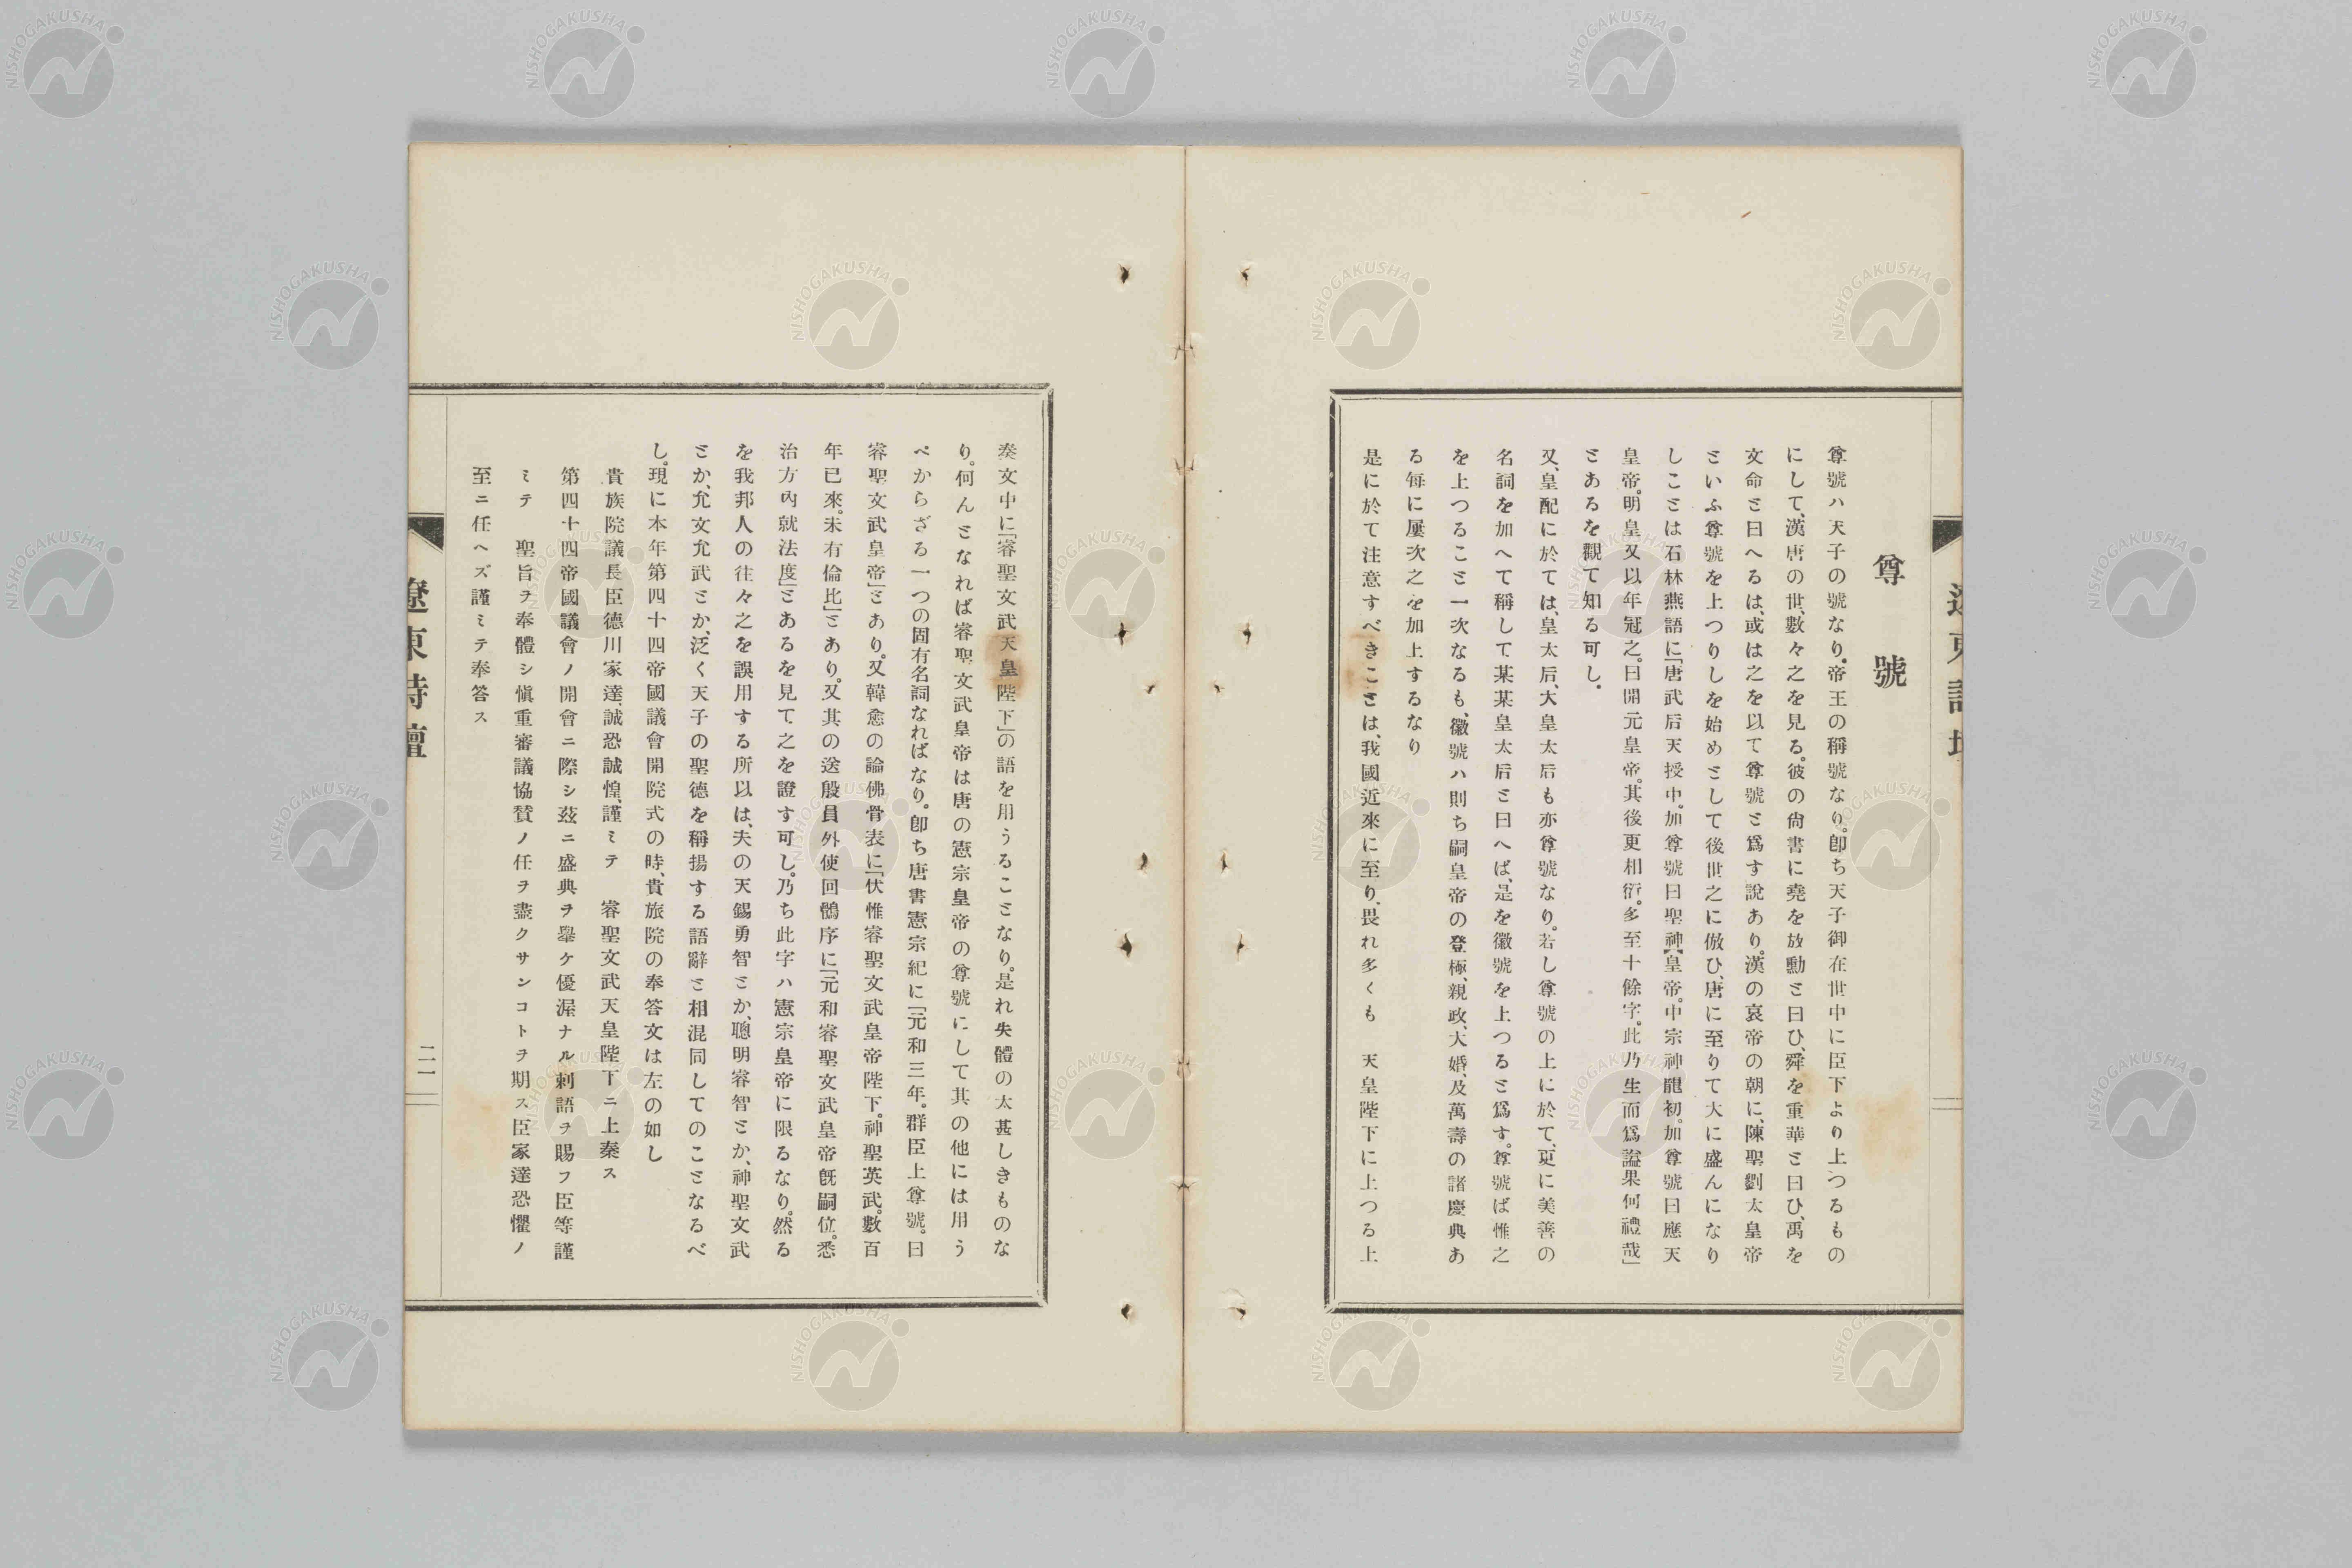 尊號
尊號ハ天子の號なり。帝王の稱號なり。卽ち天子御在世中に臣下より上つるもの
にして、漢唐の世、數々之を見る。彼の尙書に堯を放勳と曰ひ、舜を重華と曰ひ、禹を
文命と曰へるは、或は之を以て尊號と爲す說あり。漢の哀帝の朝に、陳聖劉太皇帝
といふ尊號を上つりしを始めとして後世之に倣ひ、唐に至りて大に盛んになり
しことは石林燕語に「唐武后天授中。加尊號曰聖神皇帝。中宗神龍初。加尊號曰應天
皇帝。明皇又以年冠之。曰開元皇帝。其後更相衍。多至十餘字。此乃生而爲謚果何禮哉」
とあるを觀て知る可し。
又、皇配に於ては、皇太后、大皇太后も亦尊號なり。若し尊號の上に於て、更に美善の
名詞を加へて稱して某某皇太后と曰へば、是を徽號を上つると爲す。尊號ば惟之
を上つること一次なるも、徽號ハ則ち嗣皇帝の登極、親政、大婚、及萬壽の諸慶典あ
る每に屢次之を加上するなり
是に於て注意すべきことは、我國近來に至り、畏れ多くも　天皇陛下に上つる上
奏文中に「睿聖文武天皇陛下」の語を用うることなり。是れ失體の太甚しきものな
り。何んとなれば睿聖文武皇帝は唐の憲宗皇帝の尊號にして其の他には用う
べからざる一つの固有名詞なればなり。卽ち唐書憲宗紀に「元和三年。群臣上尊號。曰
睿聖文武皇帝」とあり。又韓愈の論佛骨表に「伏惟睿聖文武皇帝陛下。神聖英武。數百
年已來。未有倫比」とあり。又其の送殷員外使回鶻序に「元和睿聖文武皇帝旣嗣位。悉
治方內就法度」とあるを見て之を證す可し。乃ち此字ハ憲宗皇帝に限るなり。然る
を我邦人の往々之を誤用する所以は、夫の天錫勇智とか、聰明睿智とか、神聖文武
とか、允文允武とか、泛く天子の聖德を稱揚する語辭と相混同してのことなるべ
し。現に本年第四十四帝國議會開院式の時、貴旅院の奉答文は左の如し
貴族院議長臣德川家達、誠恐誠惶、謹ミテ　睿聖文武天皇陛下ニ上奏ス
第四十四帝國議會ノ開會ニ際シ茲ニ盛典ヲ擧ケ優渥ナル刺語ヲ賜フ臣等謹
ミテ　聖旨ヲ奉體シ愼重審議協賛ノ任ヲ盡クサンコトヲ期ス臣家達恐懼ノ
至ニ任ヘズ謹ミテ奉答ス
遼東詩壇
二一